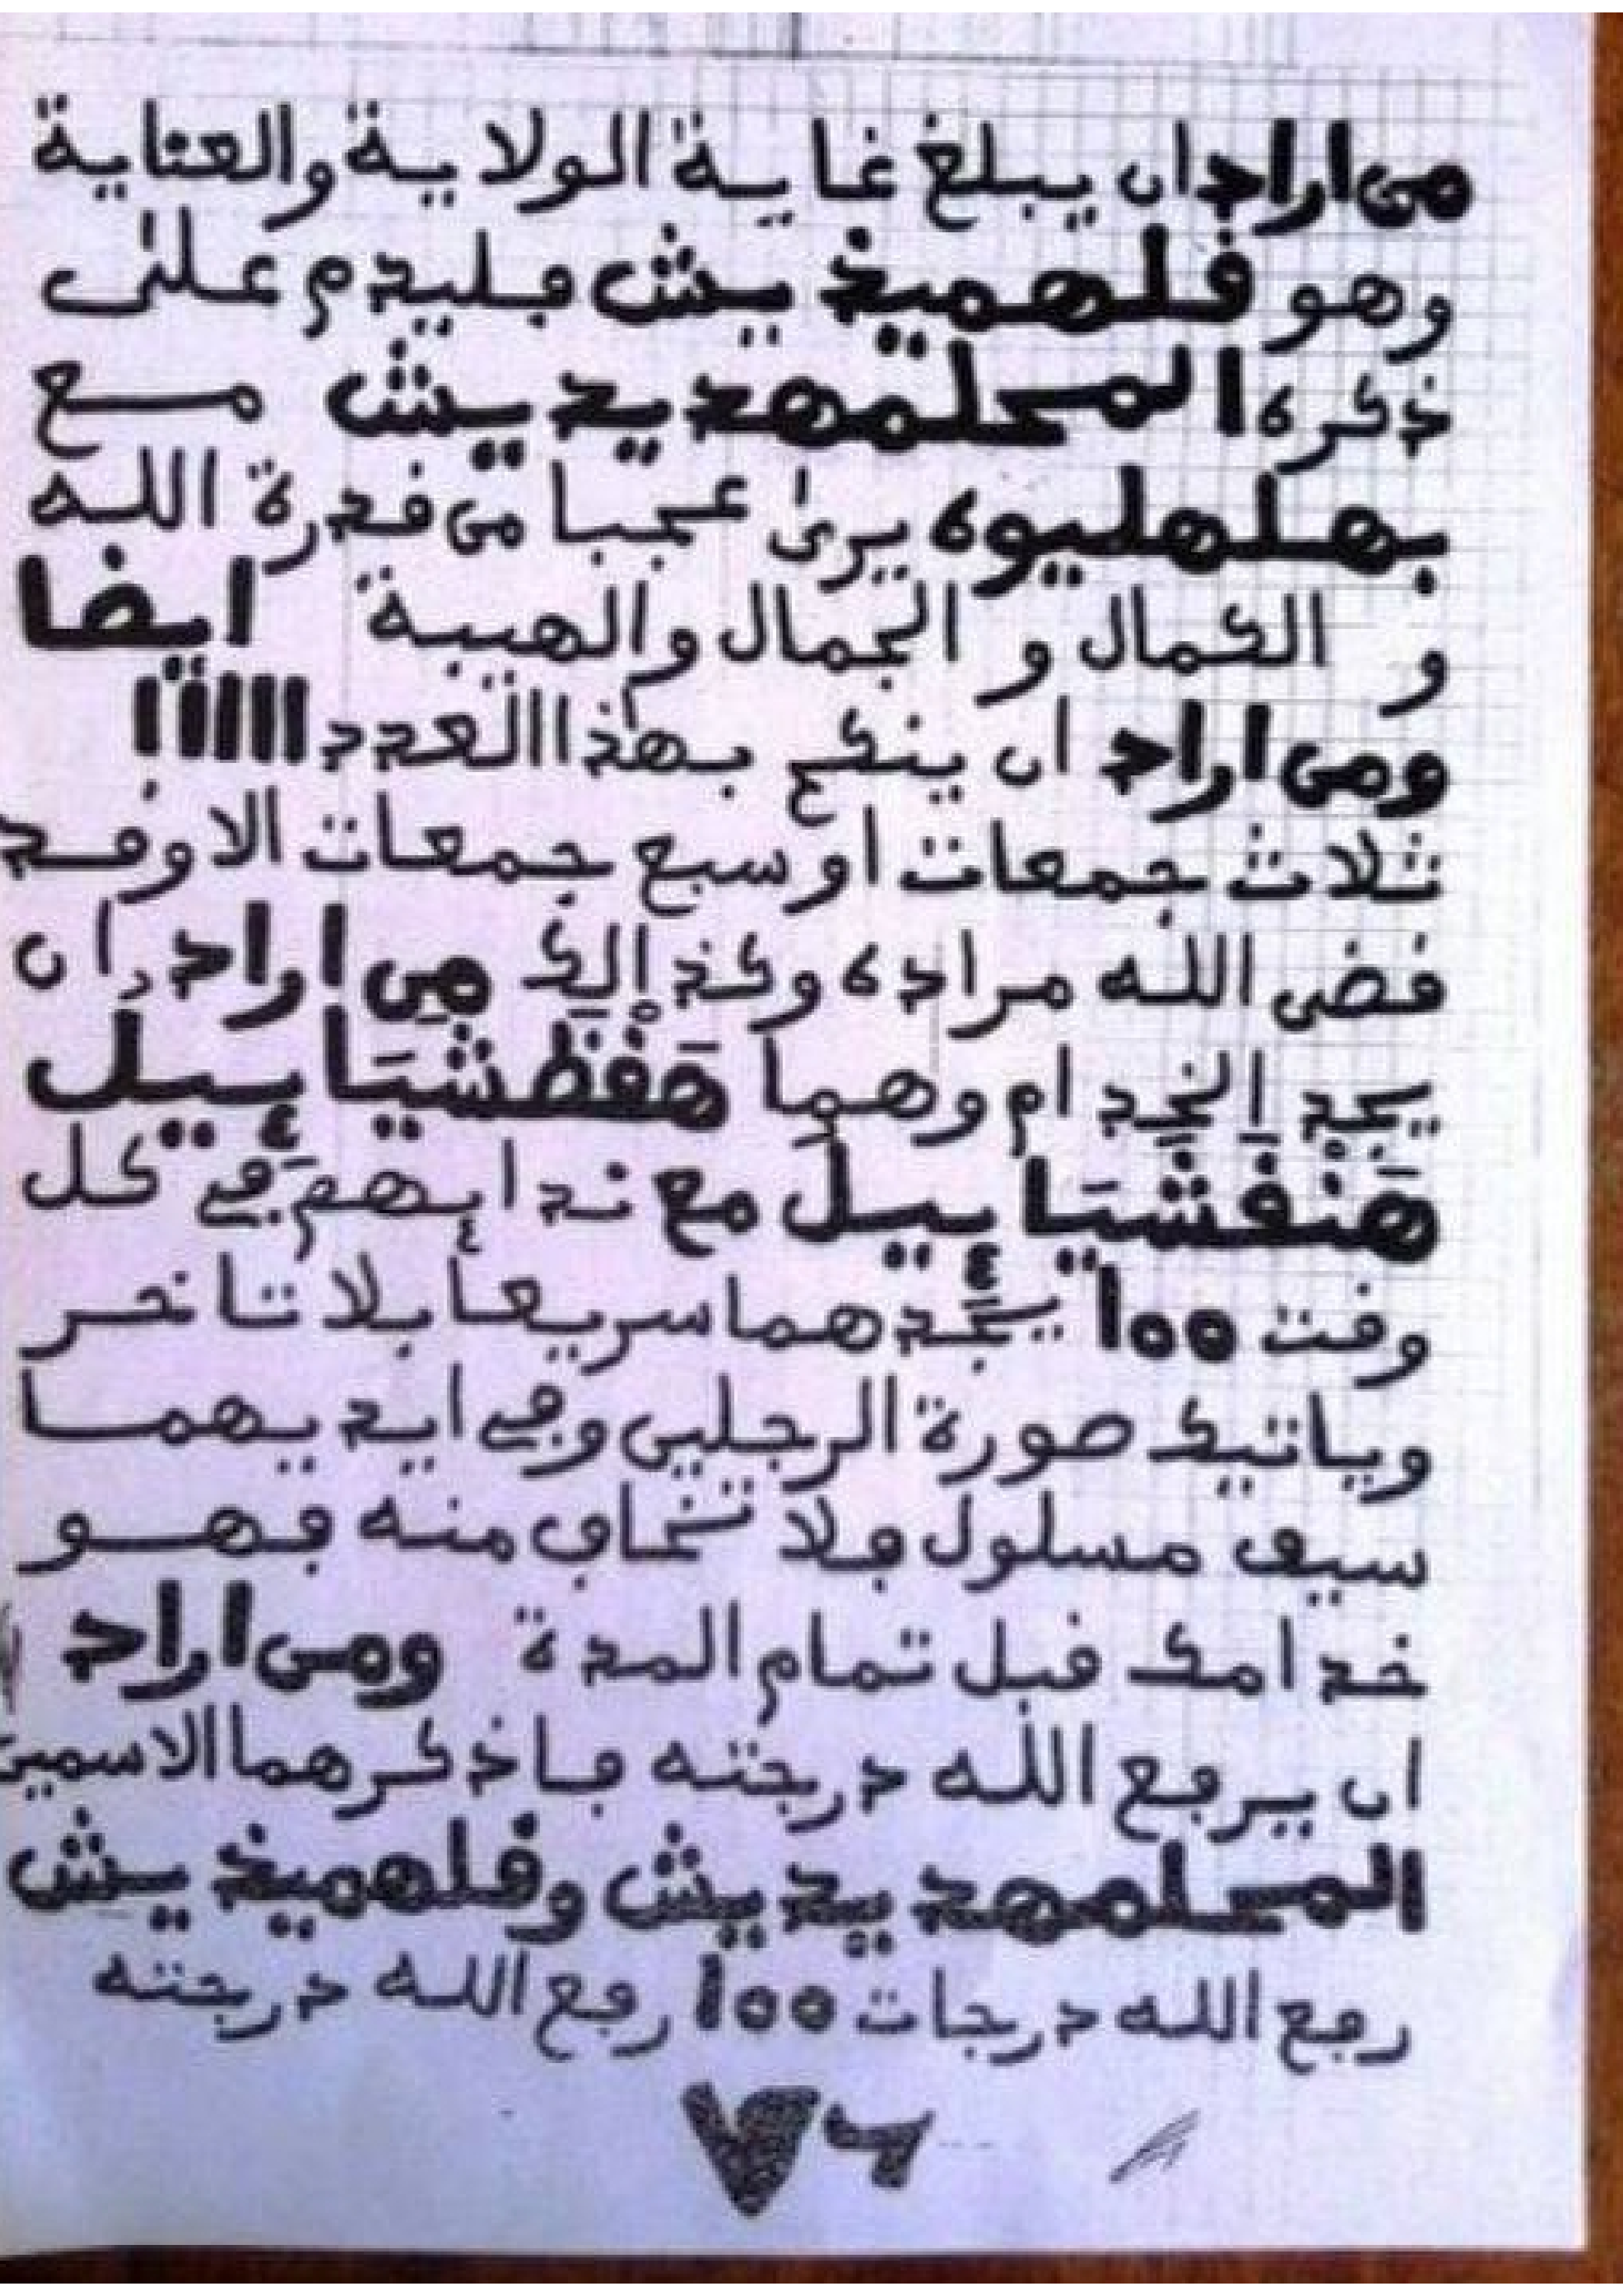 من اراد ان يبلغ غاية الولاية والعناية
وهو فلهميذيش فليدم على
ذكره المحلمهديديش مع
بهلهليوه يرى عجبا من قدرة الله
و الكمال و الجمال والهيبة ايضا
ومن اراد ان ينكح بهذا العدد 111111
ثلاث جمعات اوسبع جمعات الاوقد
قضى الله مراده وكذالك من اراد ان
يجد الخدام وهما هَقْظَشْيَايِيلَ
هَنْقَشْيَايِيلَ مع ندايهم في كل
وقت 100 يجدهما سريعا بلا تاخر
وياتيك صورة الرجلين وفي ايديهما
سيف مسلول فلا تخاف منه فهو
خدامك قبل تمام المدة ومن اراد
ان يرفع الله درجته فاذكرهما الاسمين
المحلمهديديش وفلهميذيش
رفع الله درجات 100 رفع الله درجته